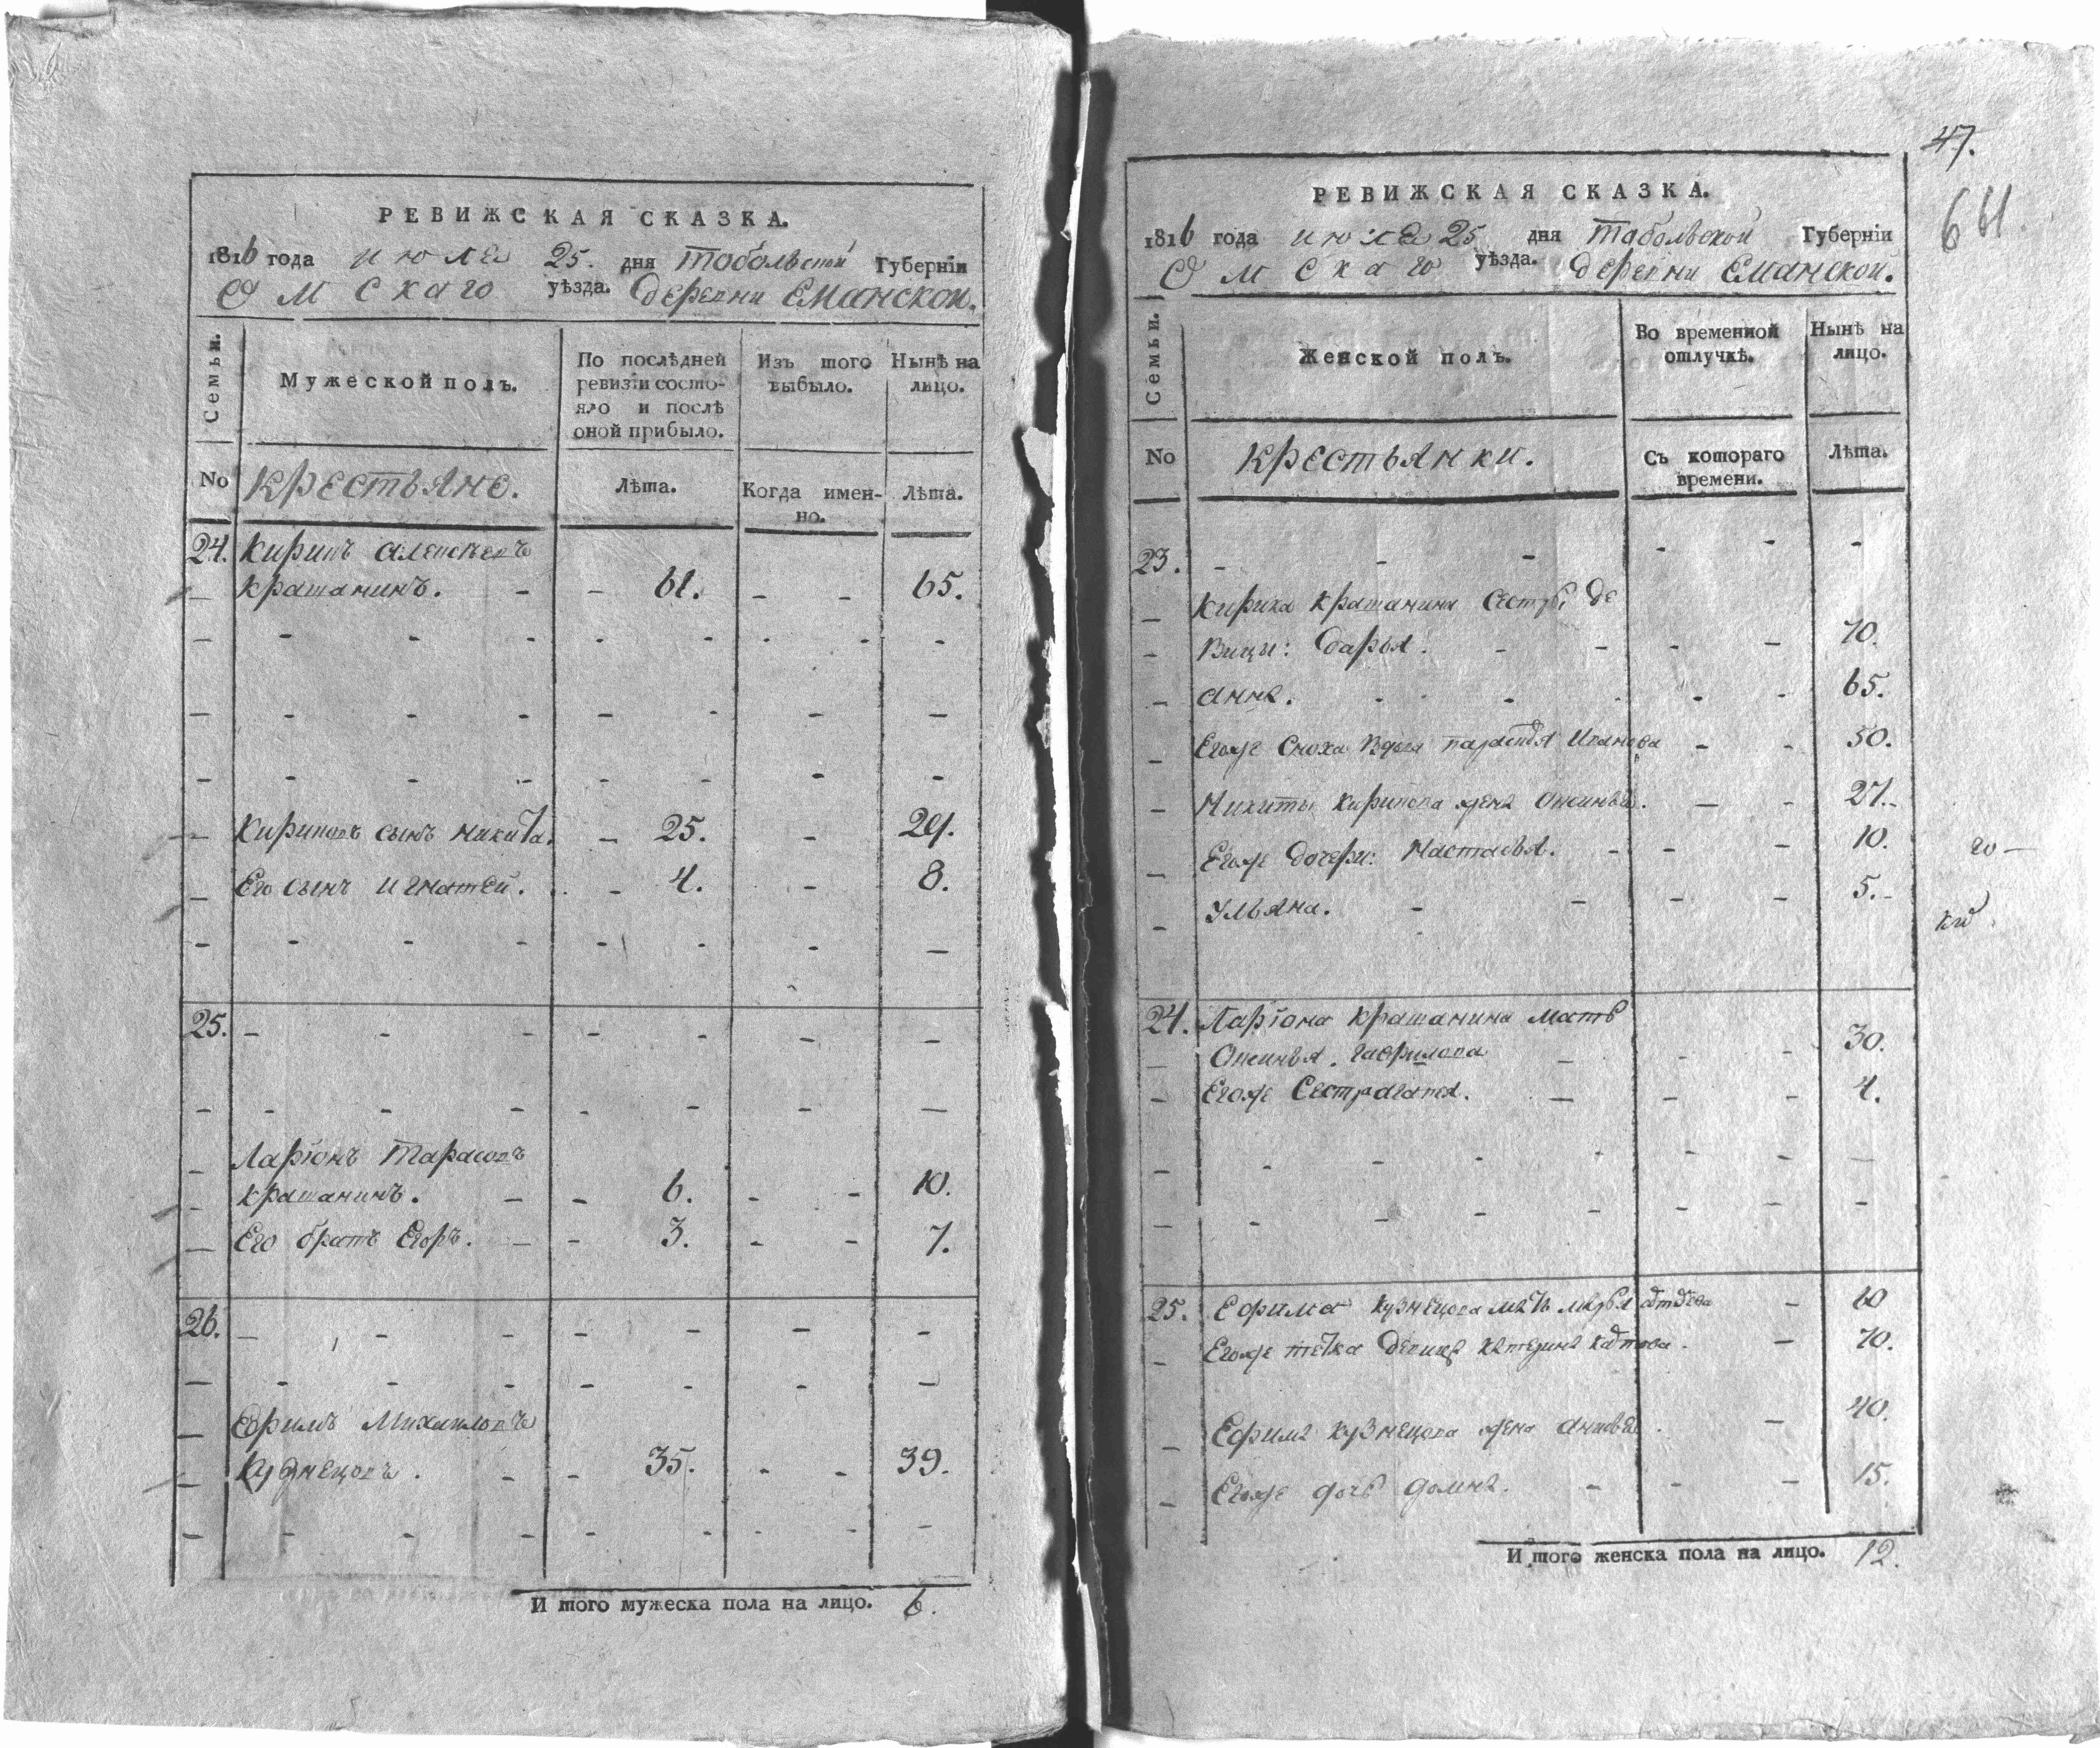 РЕВИЖСКАЯ СКАЗКА.
1816 года июля 25. дня Тобольской Губернїи
Омскаго уѣзда. деревни Еманской.
Семьи.
Мужеской полъ.
По послѣдней ревизїи состояло и послѣ оной прибыло.
Изъ того выбыло.
Нынѣ на лицо.
No
Крестьяне.
Лѣта.
Когда именно.
Лѣта.
24. Кирикъ Алексѣевъ
Крашанинъ. - - 61. - - 65.
Кириковъ сынъ Никита. - 25. - 29.
Его сынъ Игнатей. - 4. - 8.
25.
Ларїонъ Тарасовъ
Крашанинъ. - - 6. - - 10.
Его братъ Егоръ. - - 3. - - 7.
26.
Ефимъ Михаиловъ
Кузнецовъ. - - 35. - - 39.
И того мужеска пола на лицо. 6.
47.
61
РЕВИЖСКАЯ СКАЗКА.
1816 года июля 25 дня Тобольской Губернїи
Омскаго уѣзда. деревни Еманской.
Семьи.
Женской полъ.
Во временной отлучкѣ.
Нынѣ на лицо.
No
Крестьянки.
Съ котораго времени.
Лѣта.
23.
Кирика Крашанина сестры де
вицы: Дарья. - - - - 70.
Анна. - - - - 65.
Егоже сноха вдова Иванова - - 50.
Никиты Кирикова жена Оксинья. - - 27.
Егоже дочери: Настасья. - - - 10.
Ульяна. - - - - 5.
24. Ларїона Крашанина мать
Оксинья Гаврилова - - - 30.
Егоже сестра Агапея. - - - 4.
25. Ефима Кузнецова мать Марья - 60
Егоже тетка девица Катерина - 70.
Ефима Кузнецова жена - 40.
Егоже дочь Домна. - - - 15.
И того женска пола на лицо. 12.